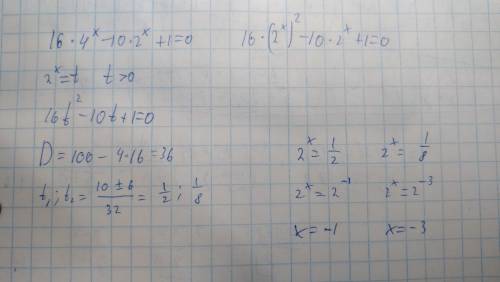 16·4ˣ-10·2ˣ+1=0
16·(2ˣ)²-10·2ˣ+1=0
2ˣ=t t>0
16t²-10t+1=0
D=100-4·16=36
t₁;t₂=(10±6)/32=1/2;1/8
2ˣ=1/2 2ˣ=1/8
2ˣ=2⁻¹ 2ˣ=2⁻³
x=-1 x=-3